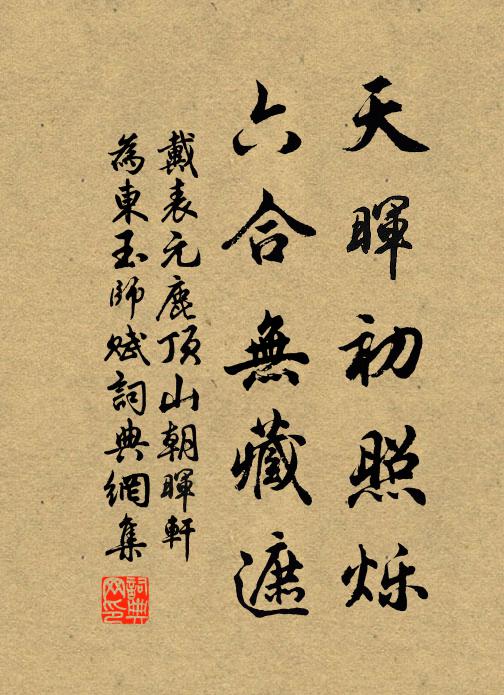 天暉初照烁
六合無藏遮
戴表元鹿頂山朝暉軒
為東玉師賦詞典網集
詞典網印